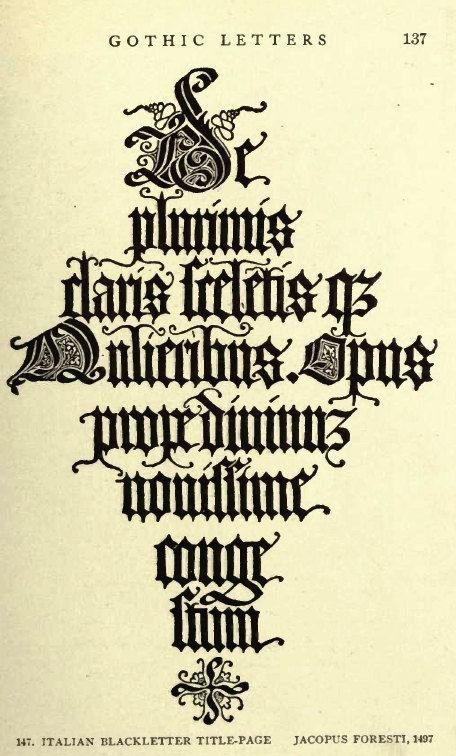 GOTHIC LETTERS 137
De
plurimis
claris ſceletis qꝫ
Mulieribus. Opus
prope diuinuz
nouiſſime
conge
ſtum
147. ITALIAN BLACKLETTER TITLE-PAGE JACOPUS FORESTI, 1497